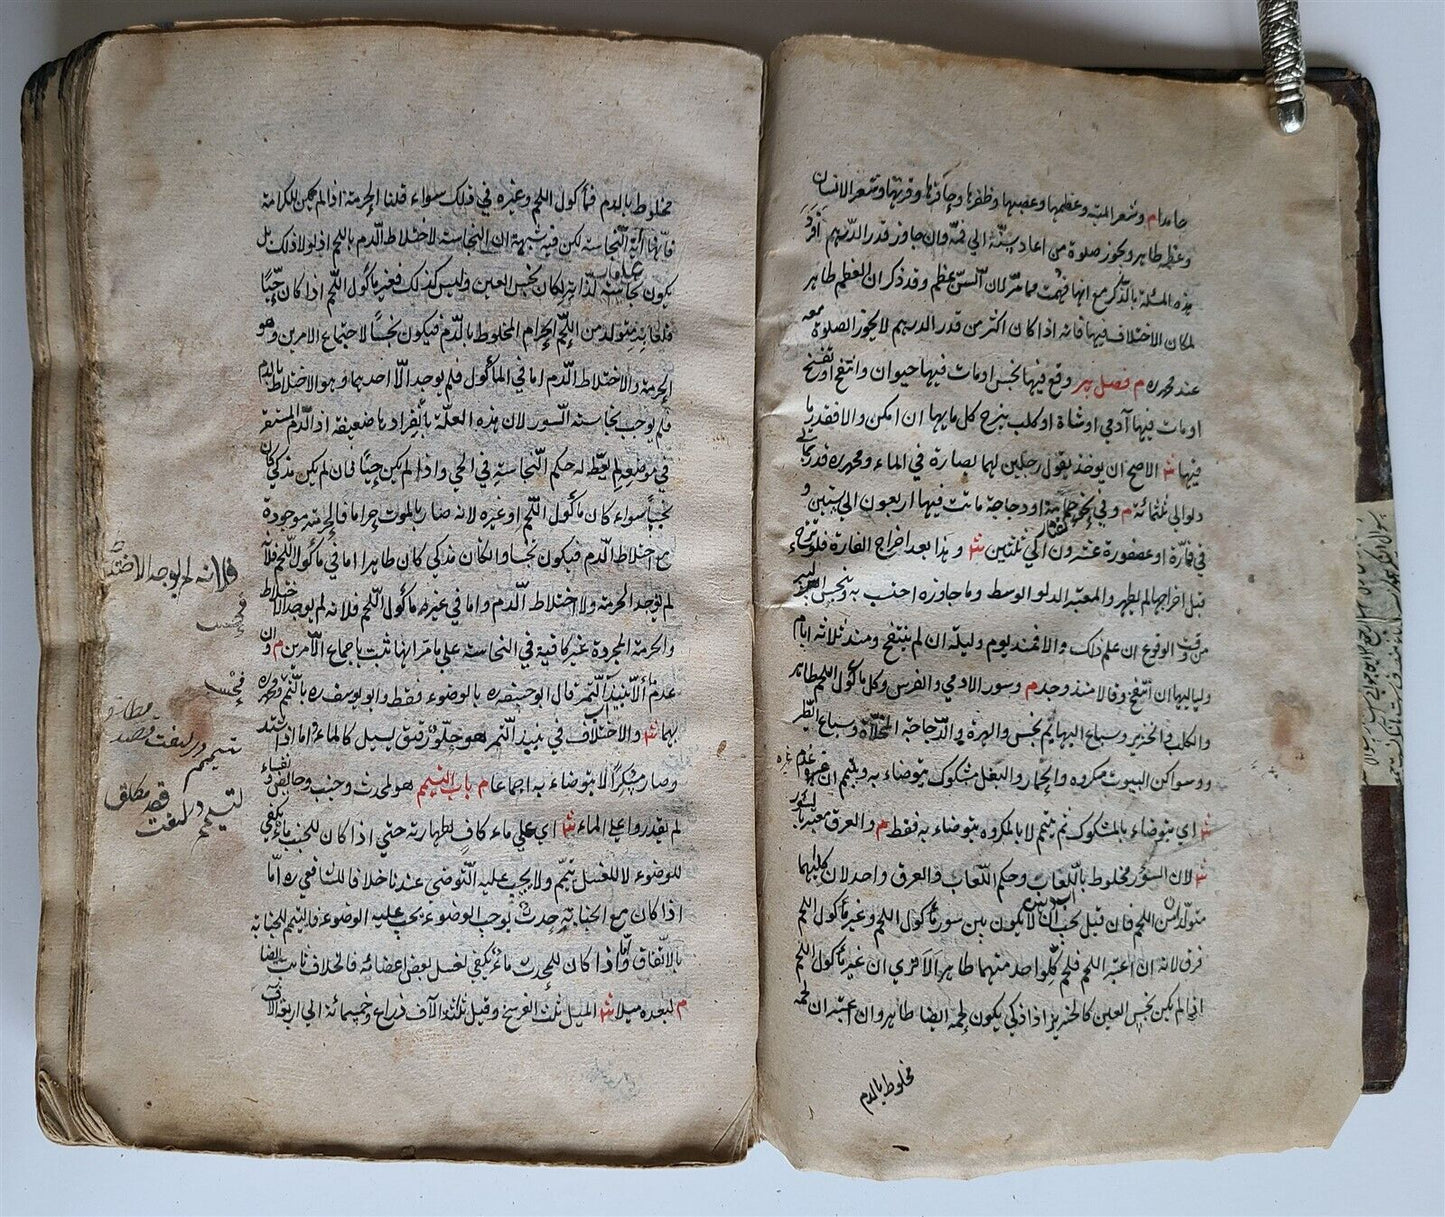 جامد م وشعر الميتة وعظمها وعصبها وظفرها وحافرها وقرنها وشعر الانسان
وعظمه طاهر ويجوز صلوة من اعاد سنّه الى فمه وان جاوز قدر الدرهم افرد
هذه المسئلة بالذكر مع انها فهمت مما مرّ لان السنّ عظم وقد ذكر ان العظم طاهر
لمكان الاختلاف فيها فانه اذا كان اكثر من قدر الدرهم لا يجوز الصلوة معه
عند محمد ره م فصل بير وقع فيها نجس او مات فيها حيوان وانتفخ او تفسخ
او مات فيها آدمي او شاة او كلب ينزح كل مائها ان امكن والا فقدر ما
فيها ش الاصح ان يوخذ بقول رجلين لهما بصارة في الماء ومحمد ره قدر بمأتي
دلو الى ثلثمائة م وفي نحو حمامة او دجاجة ماتت فيها اربعون الى ستين و
في نحو فارة او عصفورة عشرون الى ثلثين ش وهذا بعد اخراج الفارة فلو نزح
قبل اخراجها لم يطهر والمعتبر الدلو الوسط وما جاوزه احتسب به ويتنجس البير
من وقت الوقوع ان علم ذلك والا فمنذ يوم وليلة ان لم ينتفخ ومنذ ثلاثة ايام
ولياليها ان انتفخ وقالا منذ وجد م وسور الادمي والفرس وكل ما كول اللحم طاهر
والكلب والخنزير وسباع البهايم نجس والهرة والدجاجة المخلاة وسباع الطير
وسواكن البيوت مكروه والحمار والبغل مشكوك يتوضاء به ويتيمم ان عدم غيره
ش اي يتوضاء بالمشكوك ثم يتيمم لا بالمكروه يتوضاء به فقط م والعرق معتبر بالسور
ش لان السور مخلوط باللعاب وحكم اللعاب والعرق واحد لان كليهما
متولد من اللحم فان قيل يجب ان لا يكون بين سور ماكول اللحم وغير ماكول اللحم
فرق لانه ان اعتبر اللحم فلحم كل واحد منهما طاهر الا ترى ان غير ماكول اللحم
اذا لم يكن نجس العين كالخنزير اذا ذكي يكون لحمه ايضا طاهر وان اعتبر ان لحمه
مخلوط بالدم
مخلوط بالدم فماكول اللحم وغيره في ذلك سواء قلنا الحرمة اذا لم يكن للكرامة
فانها آية النجاسة لكن فيه شبهة ان النجاسة لاختلاط الدم باللحم اذ لولا ذلك بل
يكون نجاسته لذاته لكان نجس العين وليس كذلك فغير ماكول اللحم اذا كان حيّا
فلعابه متولد من اللحم الحرام المخلوط بالدم فيكون نجسا لاجتماع الامرين وهو
الحرمة والاختلاط الدم اما في الماكول فلم يوجد الا احدهما وهو الاختلاط بالدم
فلم يوجب نجاسة السور لان هذه العلة بانفرادها ضعيفة اذ الدم المستقر
في موضعه لم يعط له حكم النجاسة في الحي واذا لم يكن حيّا فان لم يكن مذكى كان
نجسا سواء كان ماكول اللحم او غيره لانه صار بالموت حراما فالحرمة موجودة
مع اختلاط الدم فيكون نجسا ولو كان مذكى كان طاهرا اما في ماكول اللحم فلانه
لم يوجد الحرمة ولا اختلاط الدم واما في غيره ماكول اللحم فلانه لم يوجد الاختلاط
والحرمة المجردة غير كافية في النجاسة على ما مر انها تثبت باجماع الامرين م فان
عدم الا نبيذ التمر قال ابو حنيفة ره بالوضوء فقط وابو يوسف ره بالتيمم ومحمد ره
بهما ش والاختلاف في نبيذ التمر هو حلو رقيق يسيل كالماء اما اذا اشتد
وصار مسكرا لا يتوضاء به اجماعا م باب التيمم هو لمحدث وجنب وحائض ونفساء
لم يقدروا على الماء ش اي على ماء كاف لطهارته حتى اذا كان للجنب ماء يكفي
للوضوء لا للغسل يتيمم ولا يجب عليه التوضي عندنا خلافا للشافعي ره اما
اذا كان مع الجنابة حدث يوجب الوضوء يجب عليه الوضوء فالتيمم للجنابة
بالاتفاق واما اذا كان للمحدث ماء يكفي لغسل بعض اعضائه فالخلاف ثابت ايضا
م لبعده ميلا ش الميل ثلث الفرسخ وقيل ثلثة الآف ذراع وخمسمائة الى اربعة الآف
فلانه لم يوجد الاختلاط